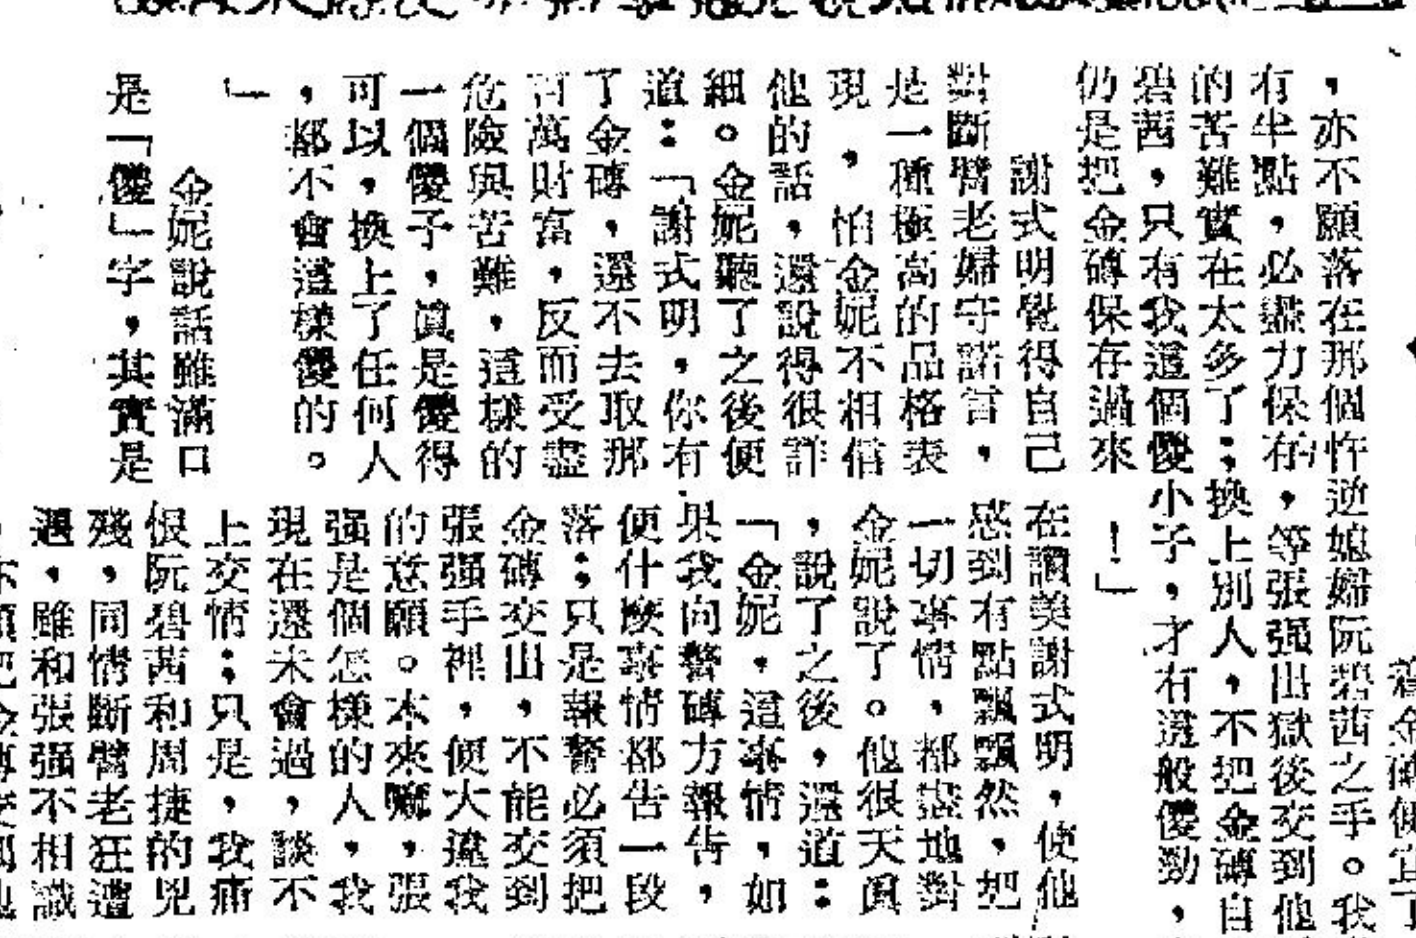 金磚便宜了
，亦不願落在那個忤逆媳婦阮碧茜之手。我
有半點，必盡力保存，等張强出獄後交到他
的苦難實在太多了；換上別人，不把金磚自
碧茜，只有我這個儍小子，才有這般儍勁，
仍是把金磚保存過來！」
謝式明覺得自己
對斷臂老婦守諾言，
是一種極高的品格表
現，怕金妮不相信
他的話，還說得很詳
細。金妮聽了之後便
道：「謝式明，你有
了金磚，還不去取那
百萬財富，反而受盡
危險與苦難，這樣的
一個儍子，眞是儍得
可以，換上了任何人
，都不會這樣儍的。
」
金妮說話雖滿口
是「儍」字，其實是
在讚美謝式明，使他
感到有點飄飄然，把
一切事情，都盡地對
金妮說了。他很天眞
，說了之後，還道：
「金妮，這事情，如
果我向警磚方報告，
便什麽事情都告一段
落；只是報警必須把
金磚交出，不能交到
張强手裡，便大違我
的意願。本來嘛，張
强是個怎樣的人，我
現在還未會過，談不
上交情；只是，我痛
恨阮碧茜和周捷的兇
殘，同情斷臂老狂遭
遇，雖和張强不相識